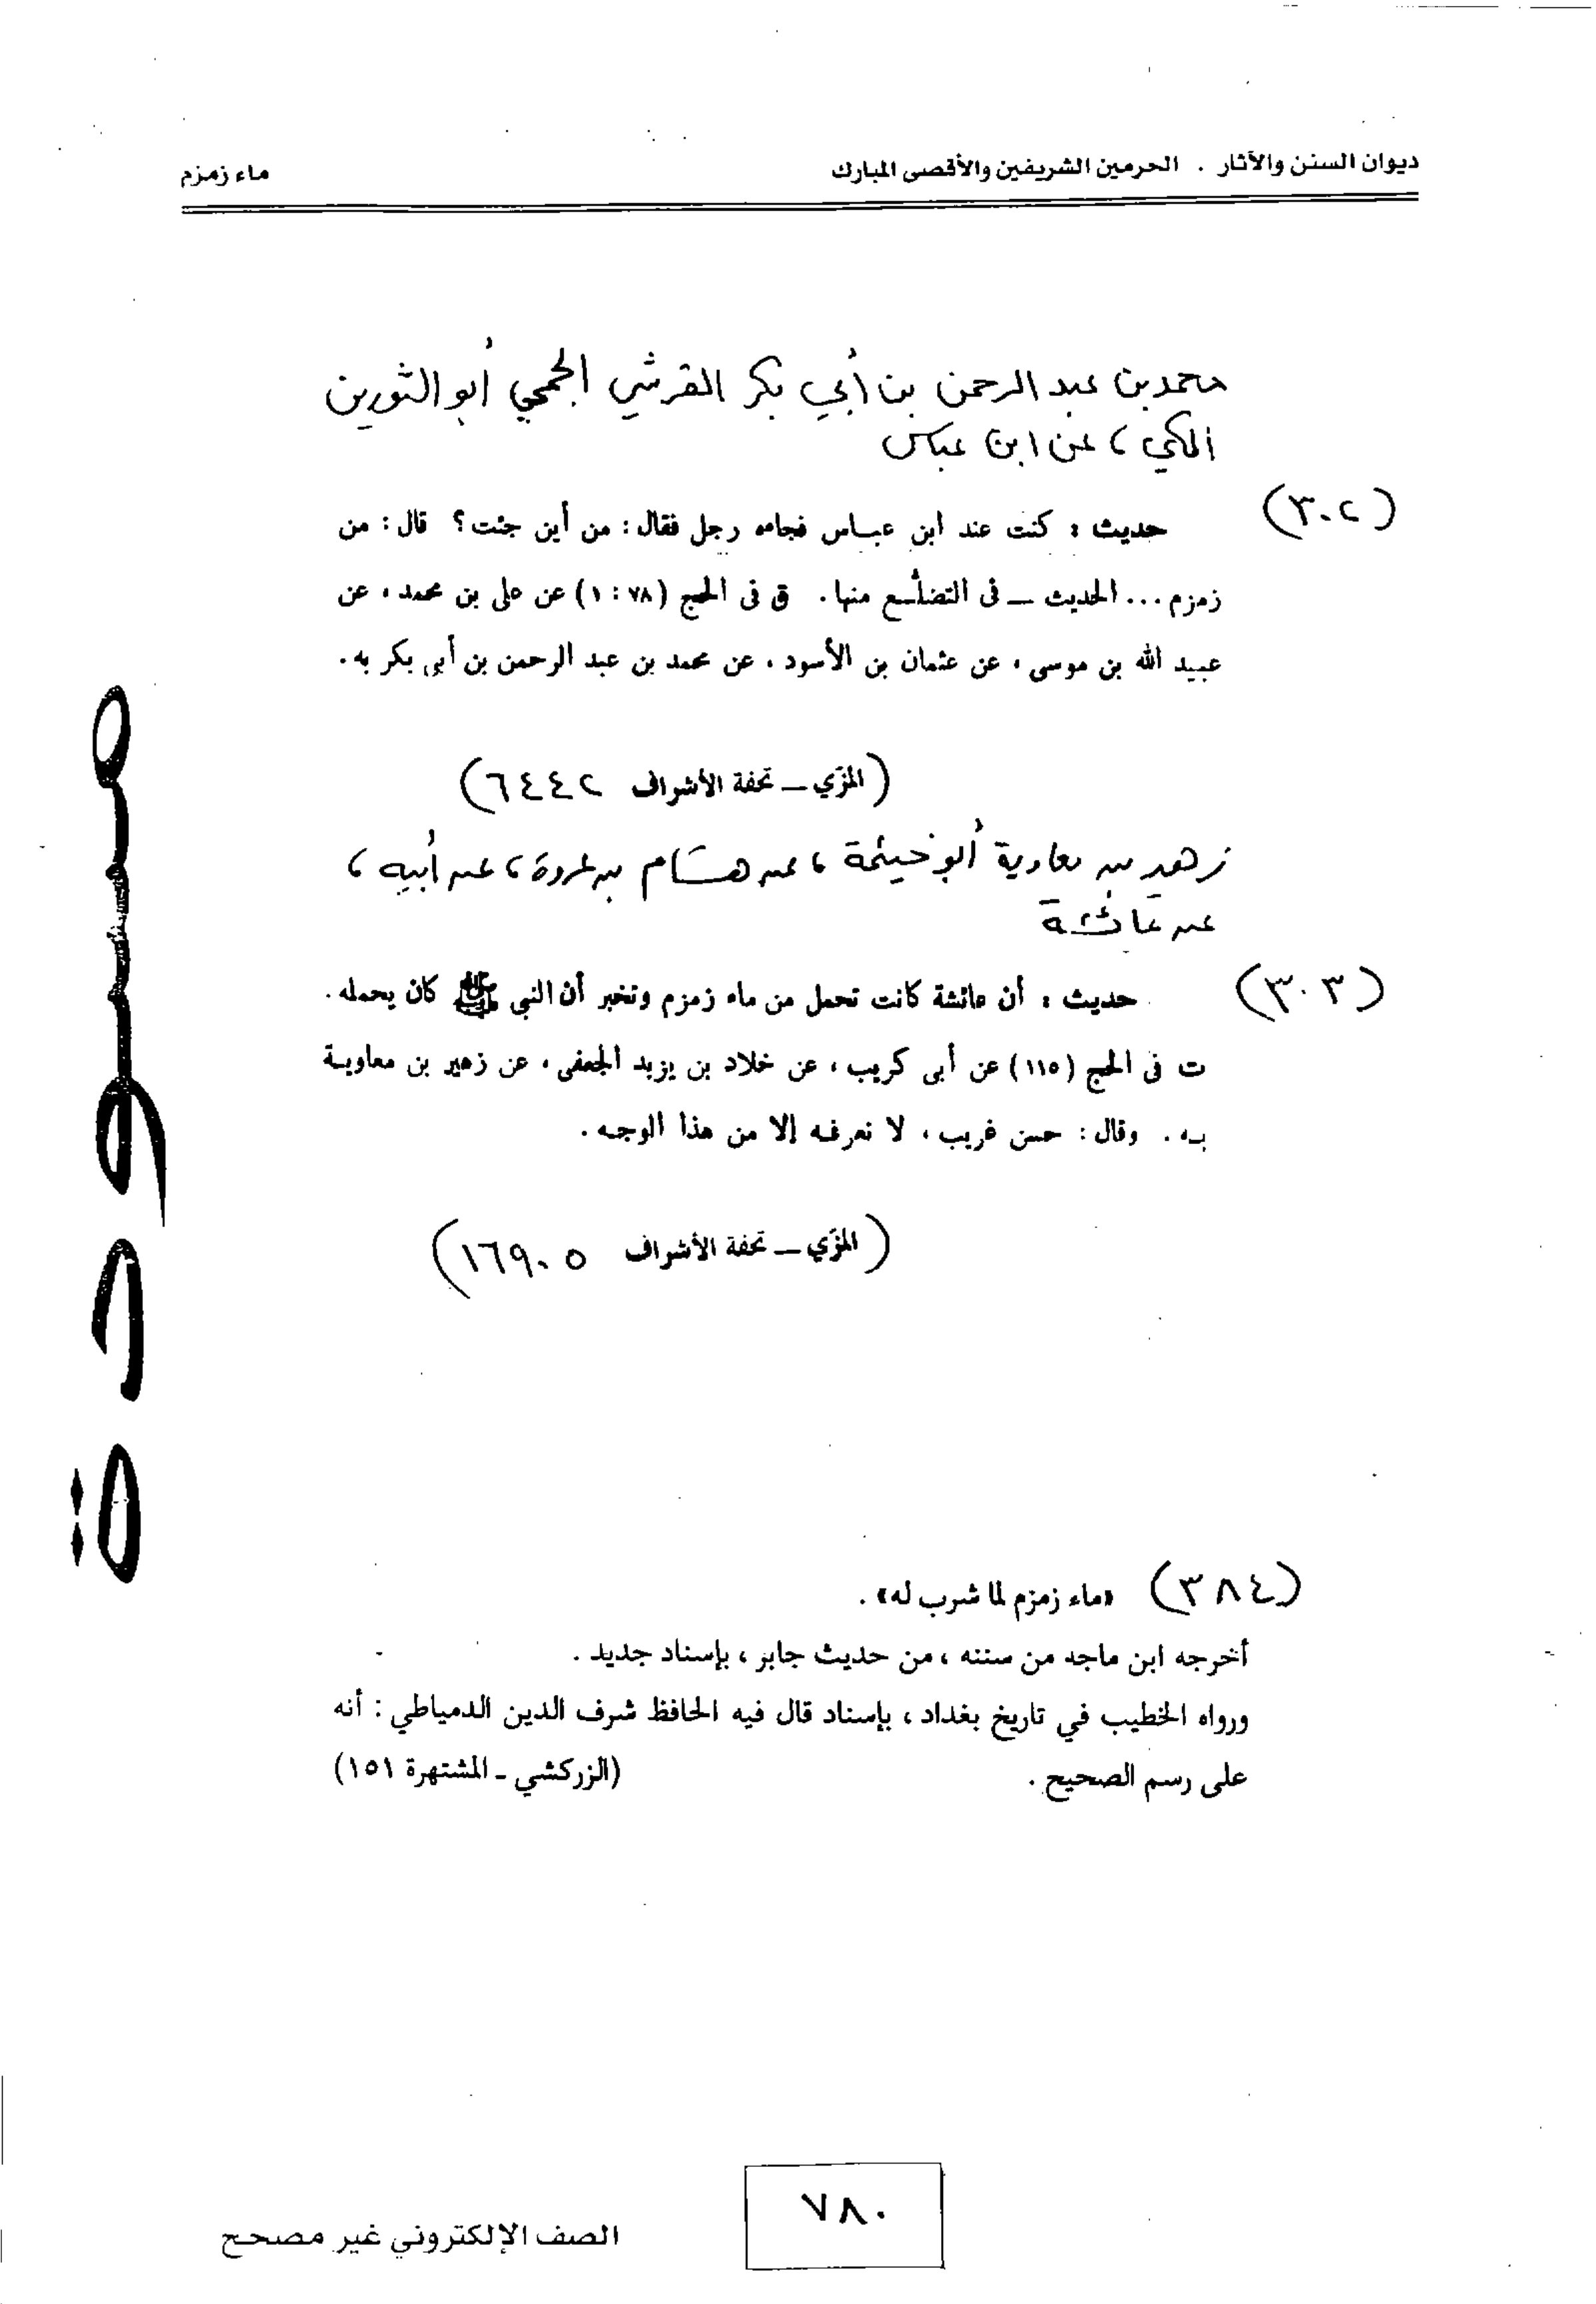 ديوان السنن والآثار . الحرمين الشريفين والأقصى المبارك
ماء زمزم
محمد بن عبد الرحمن بن أبي بكر القرشي الجمحي أبو الثورين
المكي، عن ابن عباس
(٣٠٢)
حديث : كنت عند ابن عباس فجاءه رجل فقال : من أين جئت؟ قال : من
زمزم ... الحديث ــ فى التضلُّع منها . ق فى الحج (٧٨ : ١) عن على بن محمد، عن
عبيد الله بن موسى، عن عثمان بن الأسود، عن محمد بن عبد الرحمن بن أبى بكر به.
(المزّي ــ تحفة الأشراف ٦٤٤٢)
زهير بن معاوية أبو خيثمة، عن هشام بن عروة، عن أبيه،
عن عائشة
(٣٠٣)
حديث : أن عائشة كانت تحمل من ماء زمزم وتخبر أن النبى ﷺ كان يحمله .
ت فى الحج (١١٥) عن أبى كريب، عن خلاد بن يزيد الجعفى، عن زهير بن معاويـة
بـه . وقال : حسن غريب، لا نعرفـه إلا من هذا الوجـه .
(المزّي ــ تحفة الأشراف ١٦٩٠٥)
(٣٨٤) «ماء زمزم لما شرب له» .
أخرجه ابن ماجه من سننه ، من حديث جابر ، بإسناد جديد .
ورواه الخطيب في تاريخ بغداد ، بإسناد قال فيه الحافظ شرف الدين الدمياطي : أنه
على رسم الصحيح . (الزركشي - المشتهرة ١٥١)
مسودة
٧٨٠
الصف الإلكتروني غير مصحح